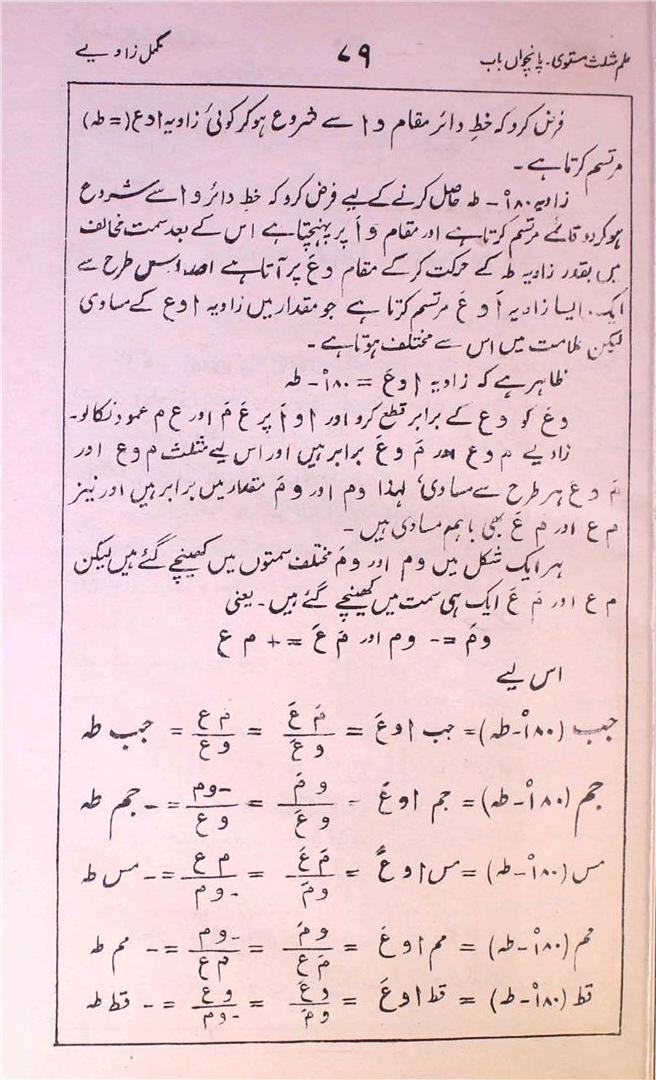 علم مثلث مستوی۔ پانچواں باب ۷۹ مکمل زاویے
فرض کرو کہ خطِ دائر مقام و ا سے شروع ہوکر کوئی زاویہ ا و ع (= طہ)
مرتسم کرتا ہے۔
زاویہ ۱۸۰° - طہ حاصل کرنے کے لیے فرض کرو کہ خط دائر و ا سے شروع
ہوکر دو قائمے مرتسم کرتا ہے اور مقام و اَ پر پہنچتا ہے اس کے بعد سمت مخالف
میں بقدر زاویہ طہ کے حرکت کرکے مقام و عَ پر آتا ہے اور اس طرح سے
ایک ایسا زاویہ اَ و عَ مرتسم کرتا ہے جو مقدار میں زاویہ ا و ع کے مساوی
لیکن علامت میں اس سے مختلف ہوتا ہے۔
ظاہر ہے کہ زاویہ ا و عَ = ۱۸۰° - طہ
و عَ کو و ع کے برابر قطع کرو اور ا و اَ پر عَ مَ اور ع م عمود نکالو۔
زاویے م و ع اور مَ و عَ برابر ہیں اور اس لیے مثلث م و ع اور
مَ و عَ ہر طرح سے مساوی، لہذا و م اور و مَ مقدار میں برابر ہیں اور نیز
م ع اور مَ عَ بھی باہم مساوی ہیں۔
ہر ایک شکل میں و م اور و مَ مختلف سمتوں میں کھینچے گئے ہیں لیکن
م ع اور مَ عَ ایک ہی سمت میں کھینچے گئے ہیں۔ یعنی
و مَ = - و م اور مَ عَ = + م ع
اس لیے
جب (۱۸۰° - طہ) = جب ا و عَ = مَ عَ / و عَ = م ع / و ع = جب طہ
جم (۱۸۰° - طہ) = جم ا و عَ - و مَ / و عَ = -و م / و ع = - جم طہ
مس (۱۸۰° - طہ) = مس ا و عَ = مَ عَ / و مَ = م ع / -و م = - مس طہ
مم (۱۸۰° - طہ) = مم ا و عَ = و مَ / مَ عَ = -و م / م ع = - مم طہ
قط (۱۸۰° - طہ) = قط ا و عَ = و عَ / و مَ = و ع / -و م = - قط طہ